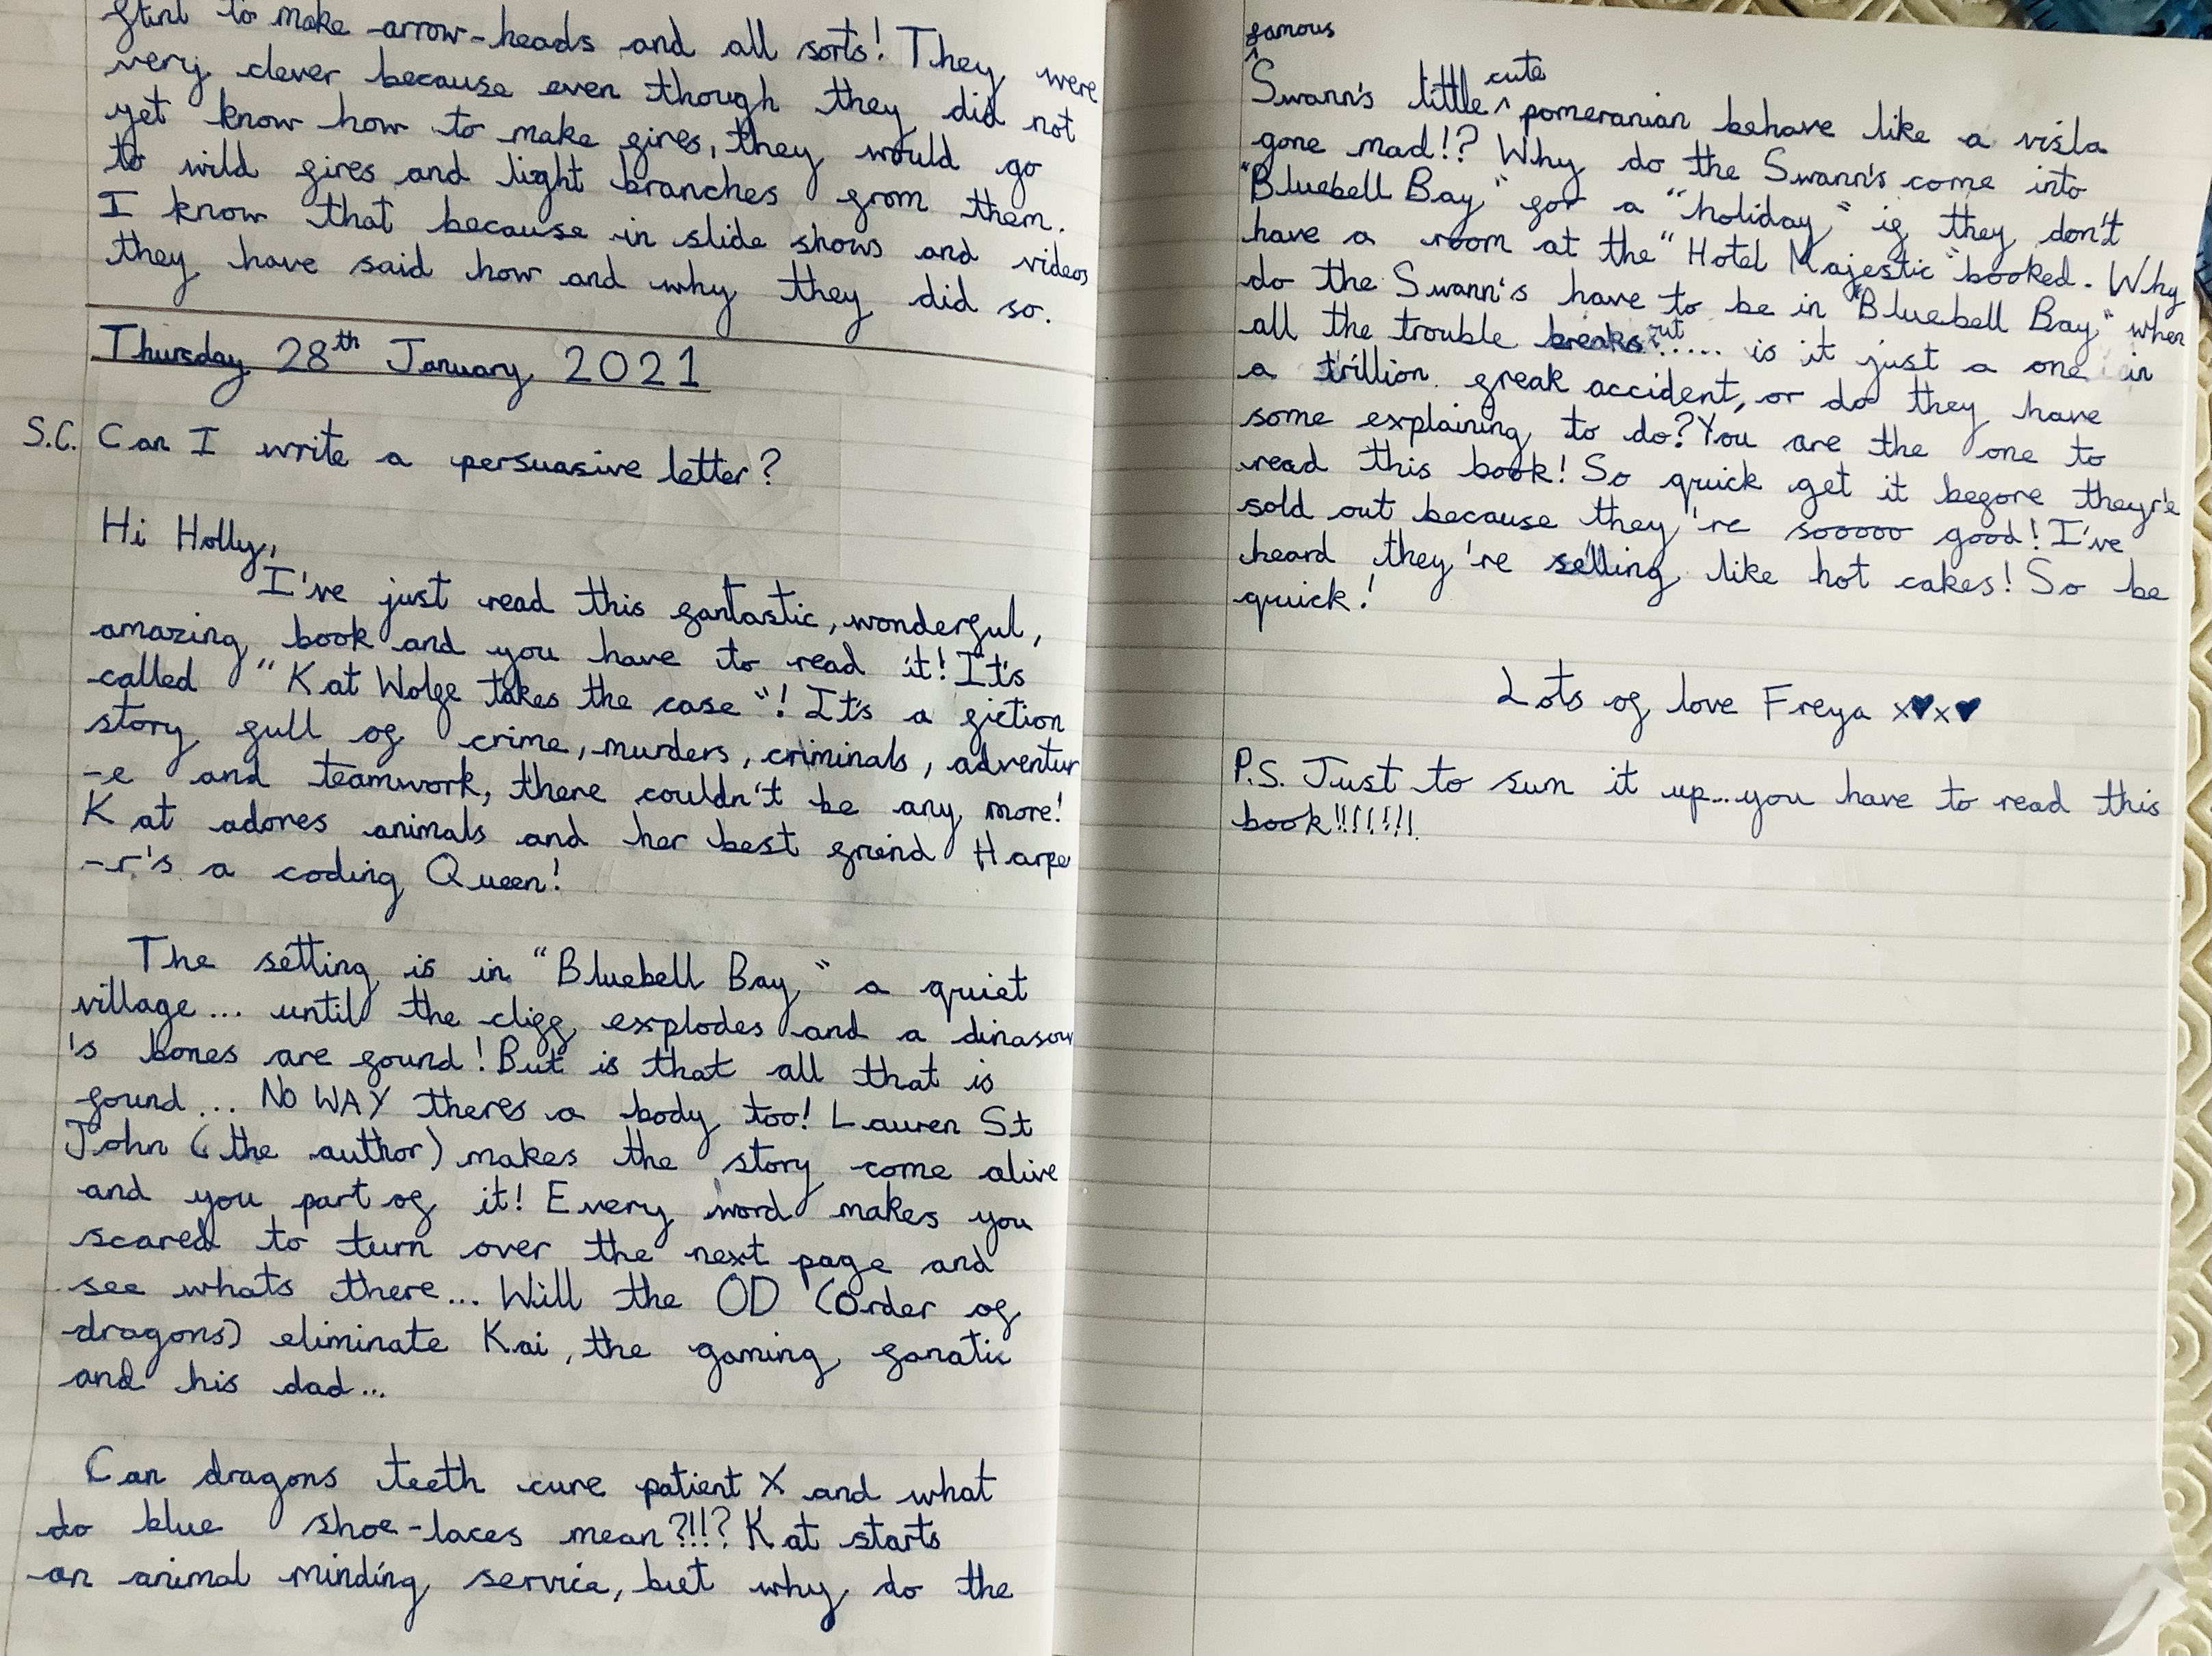 flint to make arrow-heads and all sorts! They were
very clever because even though they did not
yet know how to make fires, they would go
to wild fires and light branches from them.
I know that because in slide shows and videos
they have said how and why they did so.
Thursday 28th January 2021
S.C. Can I write a persuasive letter?
Hi Holly,
I've just read this fantastic, wonderful,
amazing book and you have to read it! It's
called "Kat Wolfe takes the case"! It's a fiction
story full of crime, murders, criminals, adventur
-e and teamwork, there couldn't be any more!
Kat adores animals and her best friend Harpe
-r's a coding Queen!
The setting is in "Bluebell Bay" a quiet
village... until the cliff explodes and a dinasour
's bones are found! But is that all that is
found... NO WAY theres a body too! Lauren St
John (the author) makes the story come alive
and you part of it! Every word makes you
scared to turn over the next page and
see whats there... Will the OD (Order of
dragons) eliminate Kai, the gaming fanatic
and his dad...
Can dragons teeth cure patient X and what
do blue shoe-laces mean?!!? Kat starts
an animal minding service, but why do the
famous
Swann's little cute pomeranian behave like a visla
gone mad!? Why do the Swann's come into
"Bluebell Bay" for a "holiday" if they don't
have a room at the "Hotel Majestic" booked. Why
do the Swann's have to be in "Bluebell Bay" when
all the trouble breaks out..... is it just a one in
a trillion freak accident, or do they have
some explaining to do? You are the one to
read this book! So quick get it before they're
sold out because they're sooooo good! I've
heard they're selling like hot cakes! So be
quick!
Lots of love Freya x♥x♥
P.S. Just to sum it up...you have to read this
book!!!!!!!